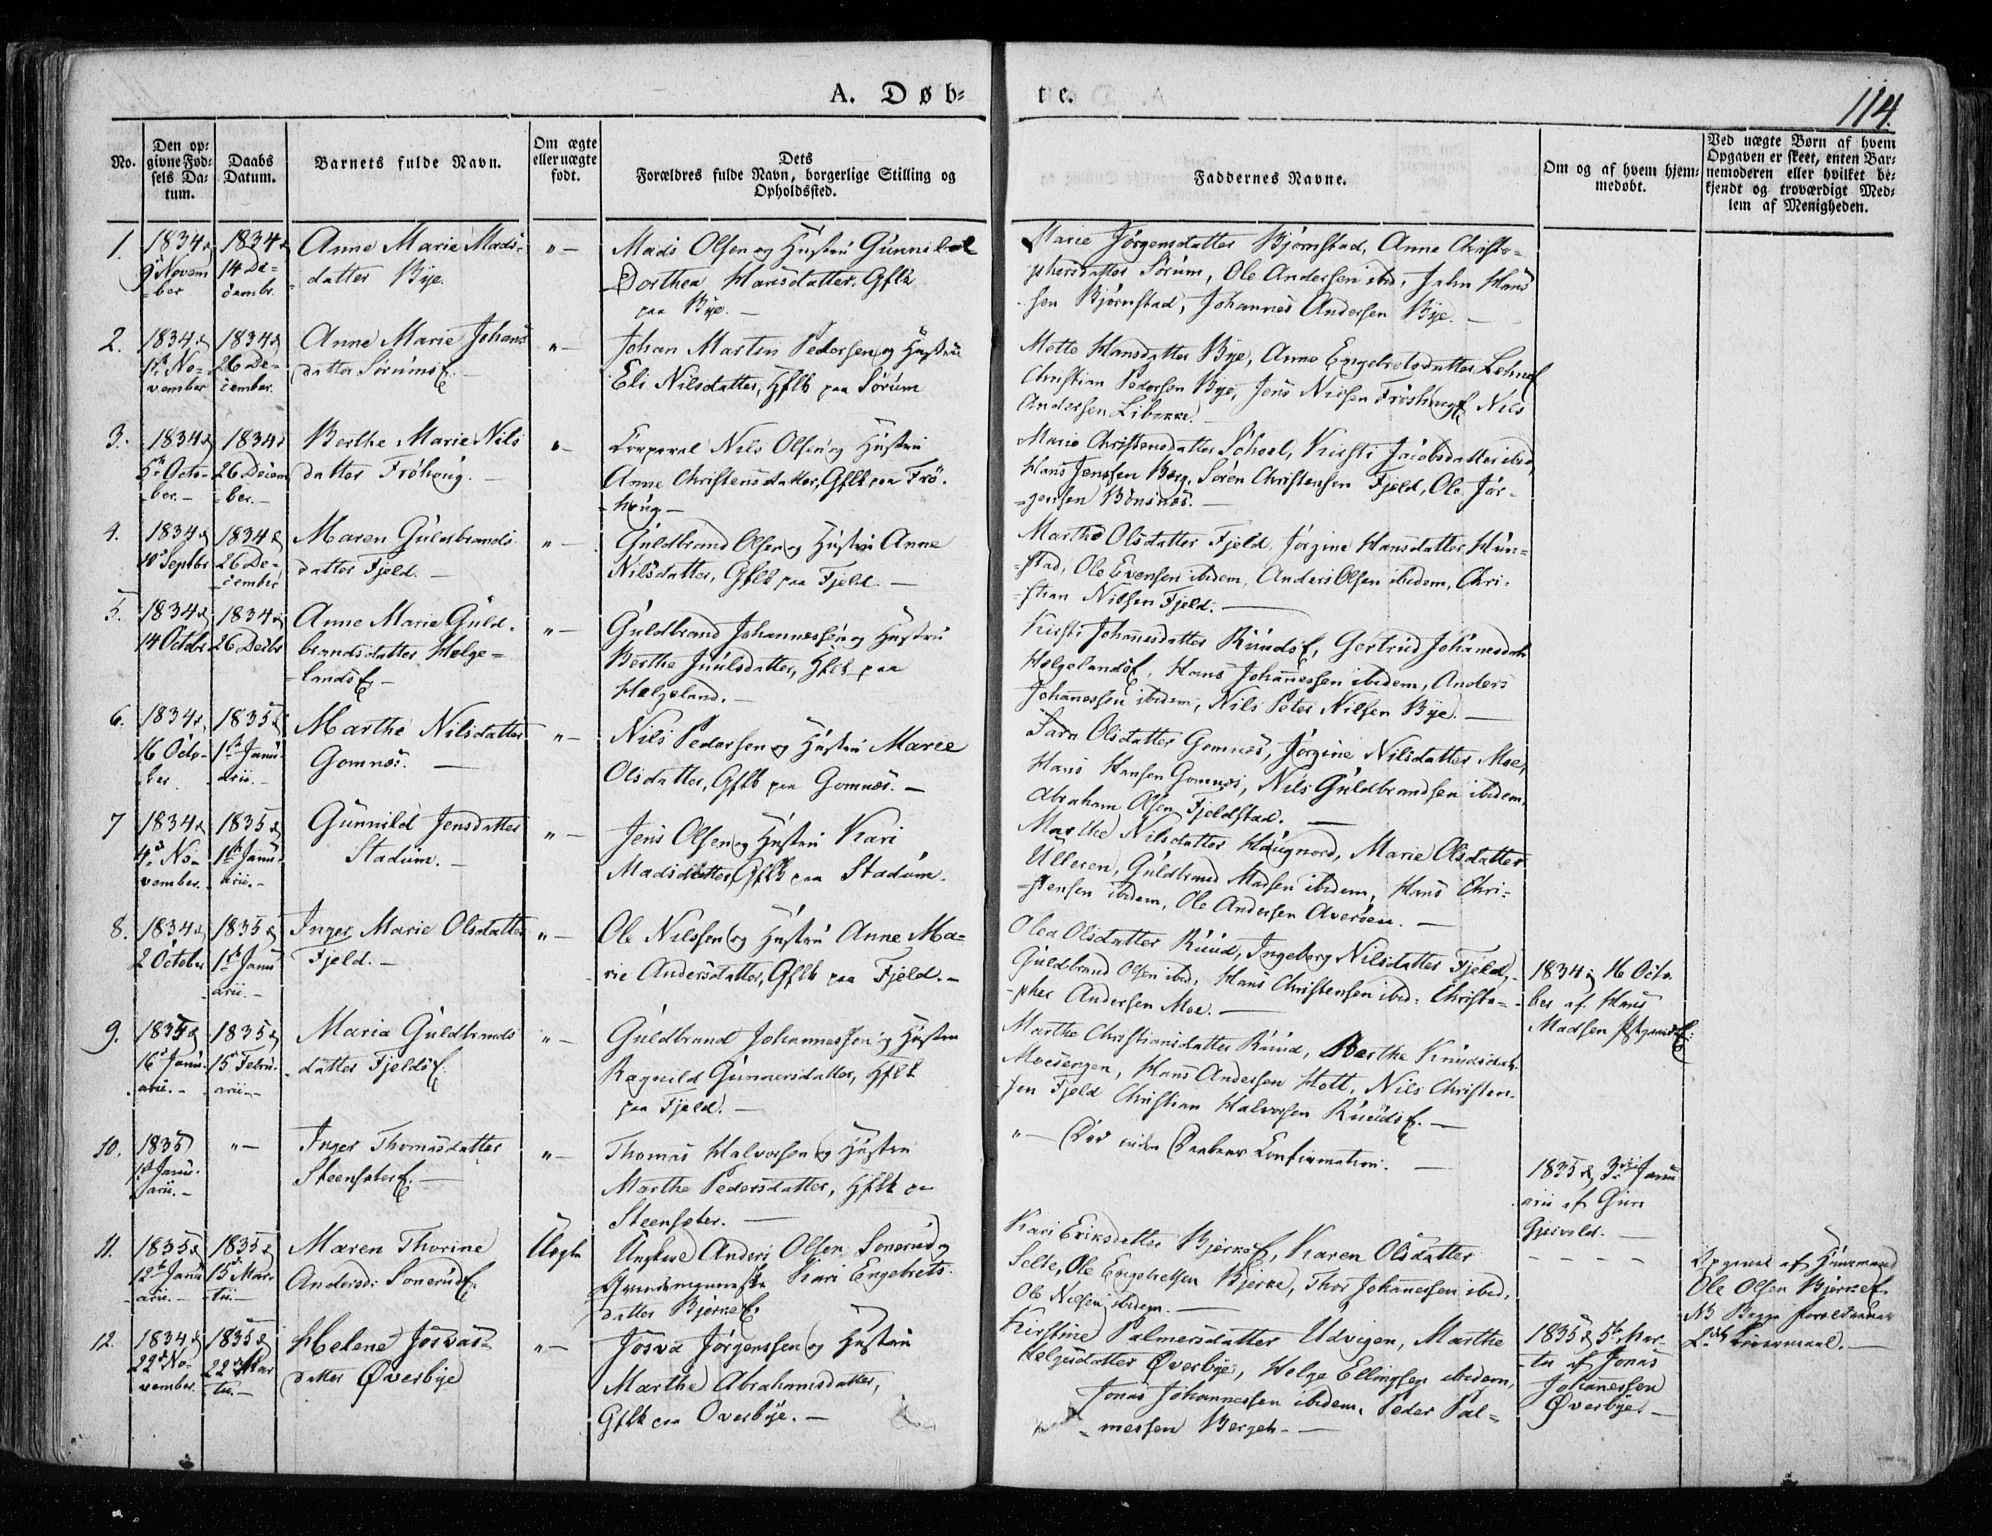 A. Døb-
te.
114.
No.
Den op-
givne Fød-
sels Da-
tum.
Daabs
Datum.
Barnets fulde Navn.
Om ægte
eller uægte
født.
Dets
Forældres fulde Navn, borgerlige Stilling og
Opholdssted.
Faddernes Navne.
Om og af hvem hjem-
medøbt.
Ved uægte Børn af hvem
Opgaven er skeet, enten Bar-
nemoderen eller hvilket be-
kjendt og troværdigt Med-
lem af Menigheden.
1.
1834
9 Novem
ber
1834
14 De-
cembr.
Anne Marie Mads-
datter Bye.
"—
Mads Olsen og Hustru Gunnild
Dorthea Hansdatter, Gflk
paa Bye. —
Marie Jørgensdatter Bjørnstad, Anne Christo-
phersdatter Sørum, Ole Andersen ibid, John Han
sen Bjørnstad, Johannes Andersen Bye. —
2.
1834
1st No-
vember
1834
26 De-
cember.
Anne Marie Johans
datter Sørums
"—
Johan Martin Pedersen og Hustru
Eli Nilsdatter, Gflk paa Sørum
Mette Hansdatter Bye, Anne Engebretsdatter
Christian Pedersen Bye, Jens Nilsen Frøshaug Nils
Andersen
3.
1834
5te Octo-
ber. —
1834
26 Decem
ber. —
Berthe Marie Nils
datter Frøhoug. —
"—
Corporal Nils Olsen og Hustru
Anne Christensdatter, Gflk paa Frø-
houg —
Marie Christensdatter Schoel, Kirsti Jacobsdatter ibid,
Hans Jenssen Berg, Søren Christensen Fjeld, Ole Jør-
gensen Bønsnæs. —
4.
1834
10 Septbr
1834
26 De-
cember
Maren Guldbrands
datter Fjeld. —
"—
Guldbrand Olsen og Hustru Anne
Nilsdatter, Gflk paa Fjeld. —
Marthe Olsdatter Fjeld, Jørgine Hansdatter Hun-
stad, Ole Evensen ibidem, Anders Olsen ibidem, Chri-
stian Nilsen Fjeld. —
5.
1834
14 Octbr
1834
26 Decbr
Anne Marie Guld-
brandsdatter Helge-
lands
"—
Guldbrand Johannessen og Hustru
Berthe Juulsdatter, Gflk paa
Helgeland. —
Kirsti Johannesdatter Ruuds, Gertrud Johannesdatr
Helgelands, Hans Johannessen ibidem, Anders
Johannessen ibidem, Nils Peter Nilsen Bye. —
6.
1834
16 Octo-
ber
1835
1st Janu
arii. —
Marthe Nilsdatter
Gomnæs. —
"—
Nils Pedersen og Hustru Maree
Olsdatter, Gflk paa Gomnæs. —
Sara Olsdatter Gomnæs, Jørgine Nilsdatter Moe,
Hans Hansen Gomnæs, Nils Guldbrandsen ibidem,
Abraham Olsen Fjeldstad. —
7
1834
4 No-
vember.
1835
1st Janu-
arii. —
Gunnild Jensdatter
Stadum. —
"—
Jens Olsen og Hustru Kari
Madsdatter, Gflk paa Stadum.
Marthe Nilsdatter Hougnord, Marie Olsdatter
Ulleren, Guldbrand Madsen ibidem, Hans Chri-
stensen ibidem, Ole Andersen Averøen. —
8.
1834
2 October
1835
1st Janu
arii. —
Inger Marie Olsdatter
Fjeld. —
"—
Ole Nilssen og Hustru Anne Ma-
rie Andersdatter, Gflk paa Fjeld. —
Olea Olsdatter Ruud, Ingeborg Nilsdatter Fjeld,
Guldbrand Olsen ibid, Hans Christensen ibid: Christo-
pher Andersen Moe. —
1834 16 Octo
ber af Hans
Madsen
9.
1835
16 Janu
arii. —
1835
15 Febru
arii —
Maria Guldbrands
datter Fjelds
"—
Guldbrand Johannessen og Hustru
Ragnild Gunnersdatter, Gflk
paa Fjeld. —
Marthe Christiansdatter Ruud, Berthe Knudsdatr
Moesengen, Hans Andersen Holt, Nils Christen-
sen Fjeld Christian Halvorsen Ruuds. —
10.
1835
1st Janu-
arii. —
"—
Inger Thomasdatter
Steensæter. —
"—
Thomas Halvorsen og Hustru
Marthe Pedersdatter, Gflk paa
Steensæter. —
"— Død inden Daabens Confirmation. —
1835 3die Janu
arii af Guri
Gjesvold. —
11.
1835
12te Janu
arii. —
1835
15 Mar-
tii. —
Maren Thorine
Andersd: Sonerud
Uægte
Ungkarl Anders Olsen Sonerud og
Kari Engebrets-
datter Bjerke.
Kari Eriksdatter Bjerke, Karen Olsdatter
Selte, Ole Engebretsen Bjerke, Thor Johannessen ibid,
Ole Nilsen ibidem. —
— — — —
Opgivet af Huusmand
Ole Olsen Bjerke
NB Begge Forældrenes
2det Leiermaal. —
12.
1834
22 No-
vember.
1835
22 Mar
tii. —
Helene Josvas-
datter Øverbye
"—
Josva Jørgenssen og Hustru
Marthe Abrahamsdatter,
Gflk paa Overbye. —
Kirstine Palmersdatter Udvigen, Marthe
Helgesdatter Øverbye, Helge Ellingsen ibidem,
Jonas Johannessen ibidem, Peder Pal-
messen Bergeh. —
1835 5te Mar-
tii af Jonas
Johannessen
Øverbye. —